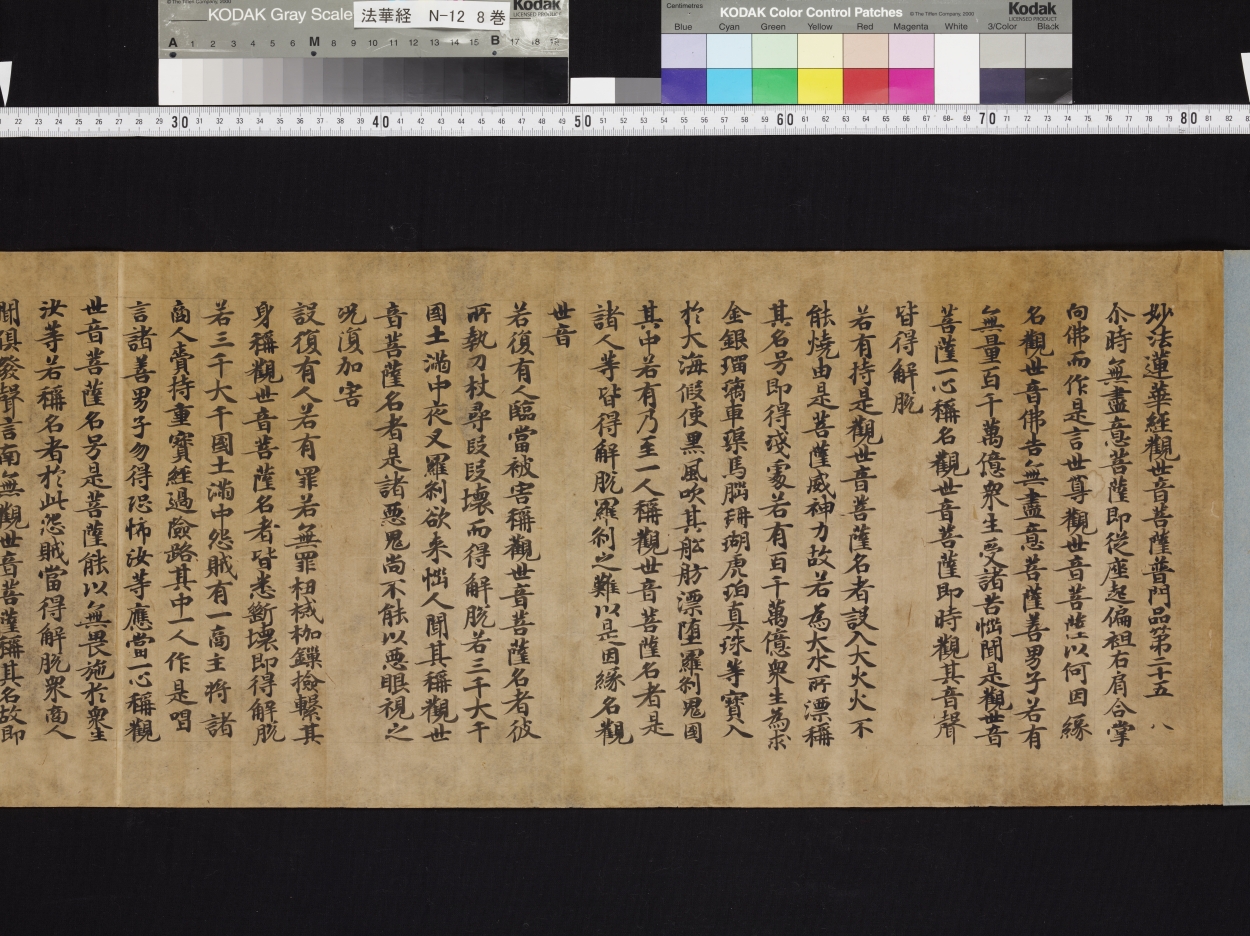 KODAK Gray Scale
法華経 N-12 8巻
Kodak
LICENSED PRODUCT
A 1 2 3 4 5 6 M 8 9 10 11 12 13 14 15 B 17 18 19
Centimetres
KODAK Color Control Patches
© The Tiffen Company, 2000
Kodak
LICENSED PRODUCT
Blue Cyan Green Yellow Red Magenta White 3/Color Black
22 23 24 25 26 27 28 29 30 31 32 33 34 35 36 37 38 39 40 41 42 43 44 45 46 47 48 49 50 51 52 53 54 55 56 57 58 59 60 61 62 63 64 65 66 67 68 69 70 71 72 73 74 75 76 77 78 79 80 81 82
妙法蓮華經觀世音菩薩普門品第二十五 八
尒時無盡意菩薩即從座起偏袒右肩合掌
向佛而作是言世尊觀世音菩薩以何因縁
名觀世音佛告無盡意菩薩善男子若有
無量百千萬億衆生受諸苦惱聞是觀世音
菩薩一心稱名觀世音菩薩即時觀其音聲
皆得解脱
若有持是觀世音菩薩名者設入大火火不
能燒由是菩薩威神力故若為大水所漂稱
其名号即得淺處若有百千萬億衆生為求
金銀瑠璃車𤦲馬腦珊瑚虎珀真珠等寶入
於大海假使黒風吹其舩舫漂堕羅刹鬼國
其中若有乃至一人稱觀世音菩薩名者是
諸人等皆得解脱羅刹之難以是因縁名觀
世音
若復有人臨當被害稱觀世音菩薩名者彼
所執刀杖尋段段壊而得解脱若三千大千
國土滿中夜叉羅刹欲来惱人聞其稱觀世
音菩薩名者是諸悪鬼尚不能以悪眼視之
况復加害
設復有人若有罪若無罪杻械枷鏁撿繋其
身稱觀世音菩薩名者皆悉斷壊即得解脱
若三千大千國土滿中怨賊有一商主將諸
商人賫持重寶經過險路其中一人作是唱
言諸善男子勿得恐怖汝等應當一心稱觀
世音菩薩名号是菩薩能以無畏施於衆生
汝等若稱名者於此怨賊當得解脱衆商人
聞俱發聲言南無觀世音菩薩稱其名故即